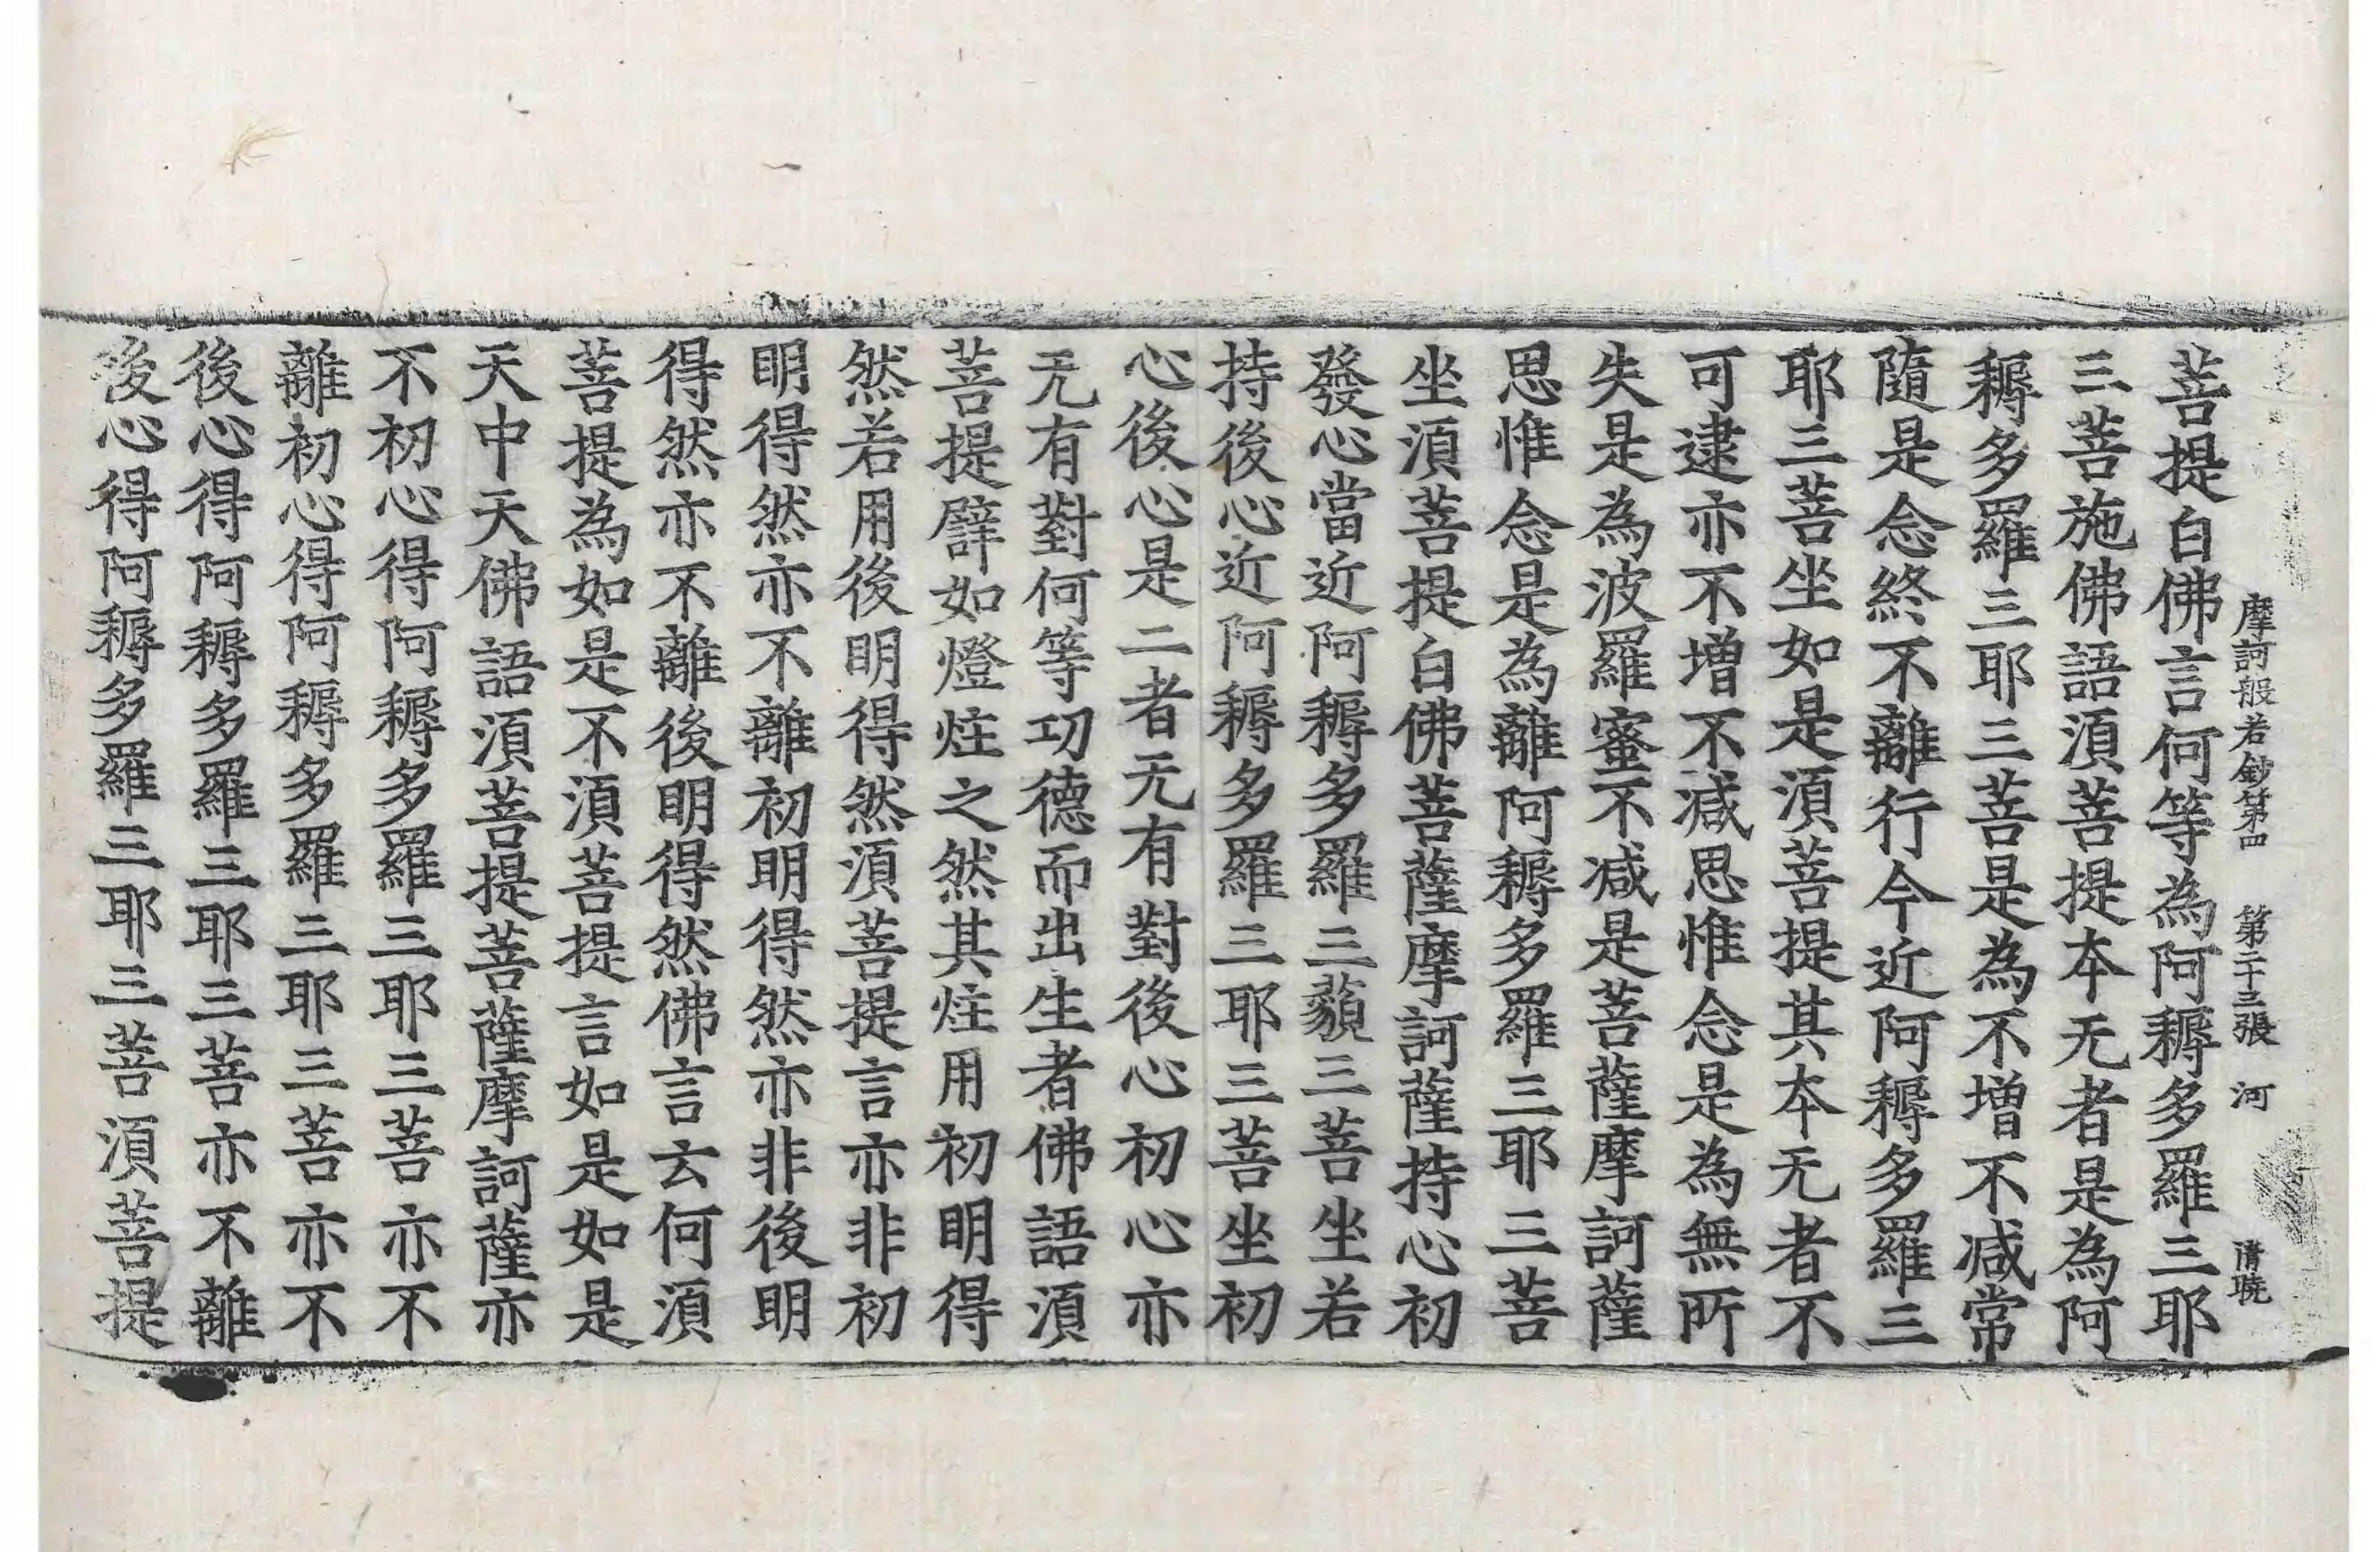 摩訶般若鈔第四　第二十三張　河　清曉
菩提白佛言何等為阿耨多羅三耶
三菩施佛語須菩提本无者是為阿
耨多羅三耶三菩是為不增不減常
隨是念終不離行今近阿耨多羅三
耶三菩坐如是須菩提其本无者不
可逮亦不增不減思惟念是為無所
失是為波羅蜜不減是菩薩摩訶薩
思惟念是為離阿耨多羅三耶三菩
坐須菩提白佛菩薩摩訶薩持心初
發心當近阿耨多羅三藐三菩坐若
持後心近阿耨多羅三耶三菩坐初
心後心是二者无有對後心初心亦
无有對何等功德而出生者佛語須
菩提譬如燈炷之然其炷用初明得
然若用後明得然須菩提言亦非初
明得然亦不離初明得然亦非後明
得然亦不離後明得然佛言云何須
菩提為如是不須菩提言如是如是
天中天佛語須菩提菩薩摩訶薩亦
不初心得阿耨多羅三耶三菩亦不
離初心得阿耨多羅三耶三菩亦不
後心得阿耨多羅三耶三菩亦不離
後心得阿耨多羅三耶三菩須菩提